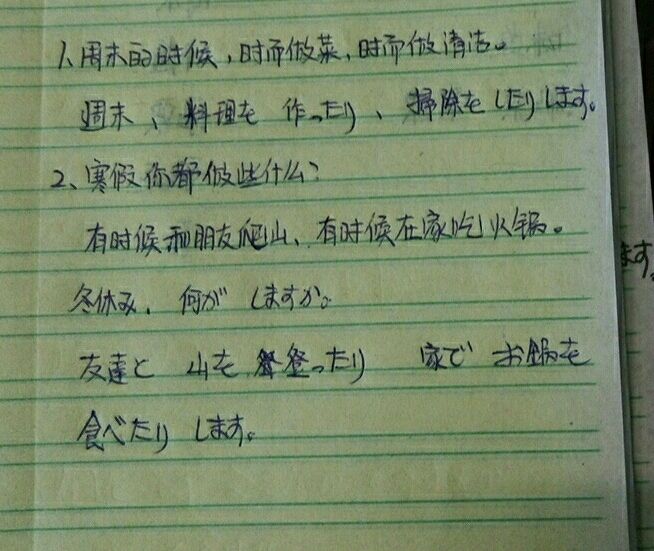 1、周末的时候，时而做菜，时而做清洁。
週末、料理を 作ったり、掃除を したり します。
2、寒假你都做些什么？
有时候和朋友爬山、有时候在家吃火锅。
冬休み、何が しますか。
友達と 山を 登ったり 家で お鍋を
食べたり します。
ます。